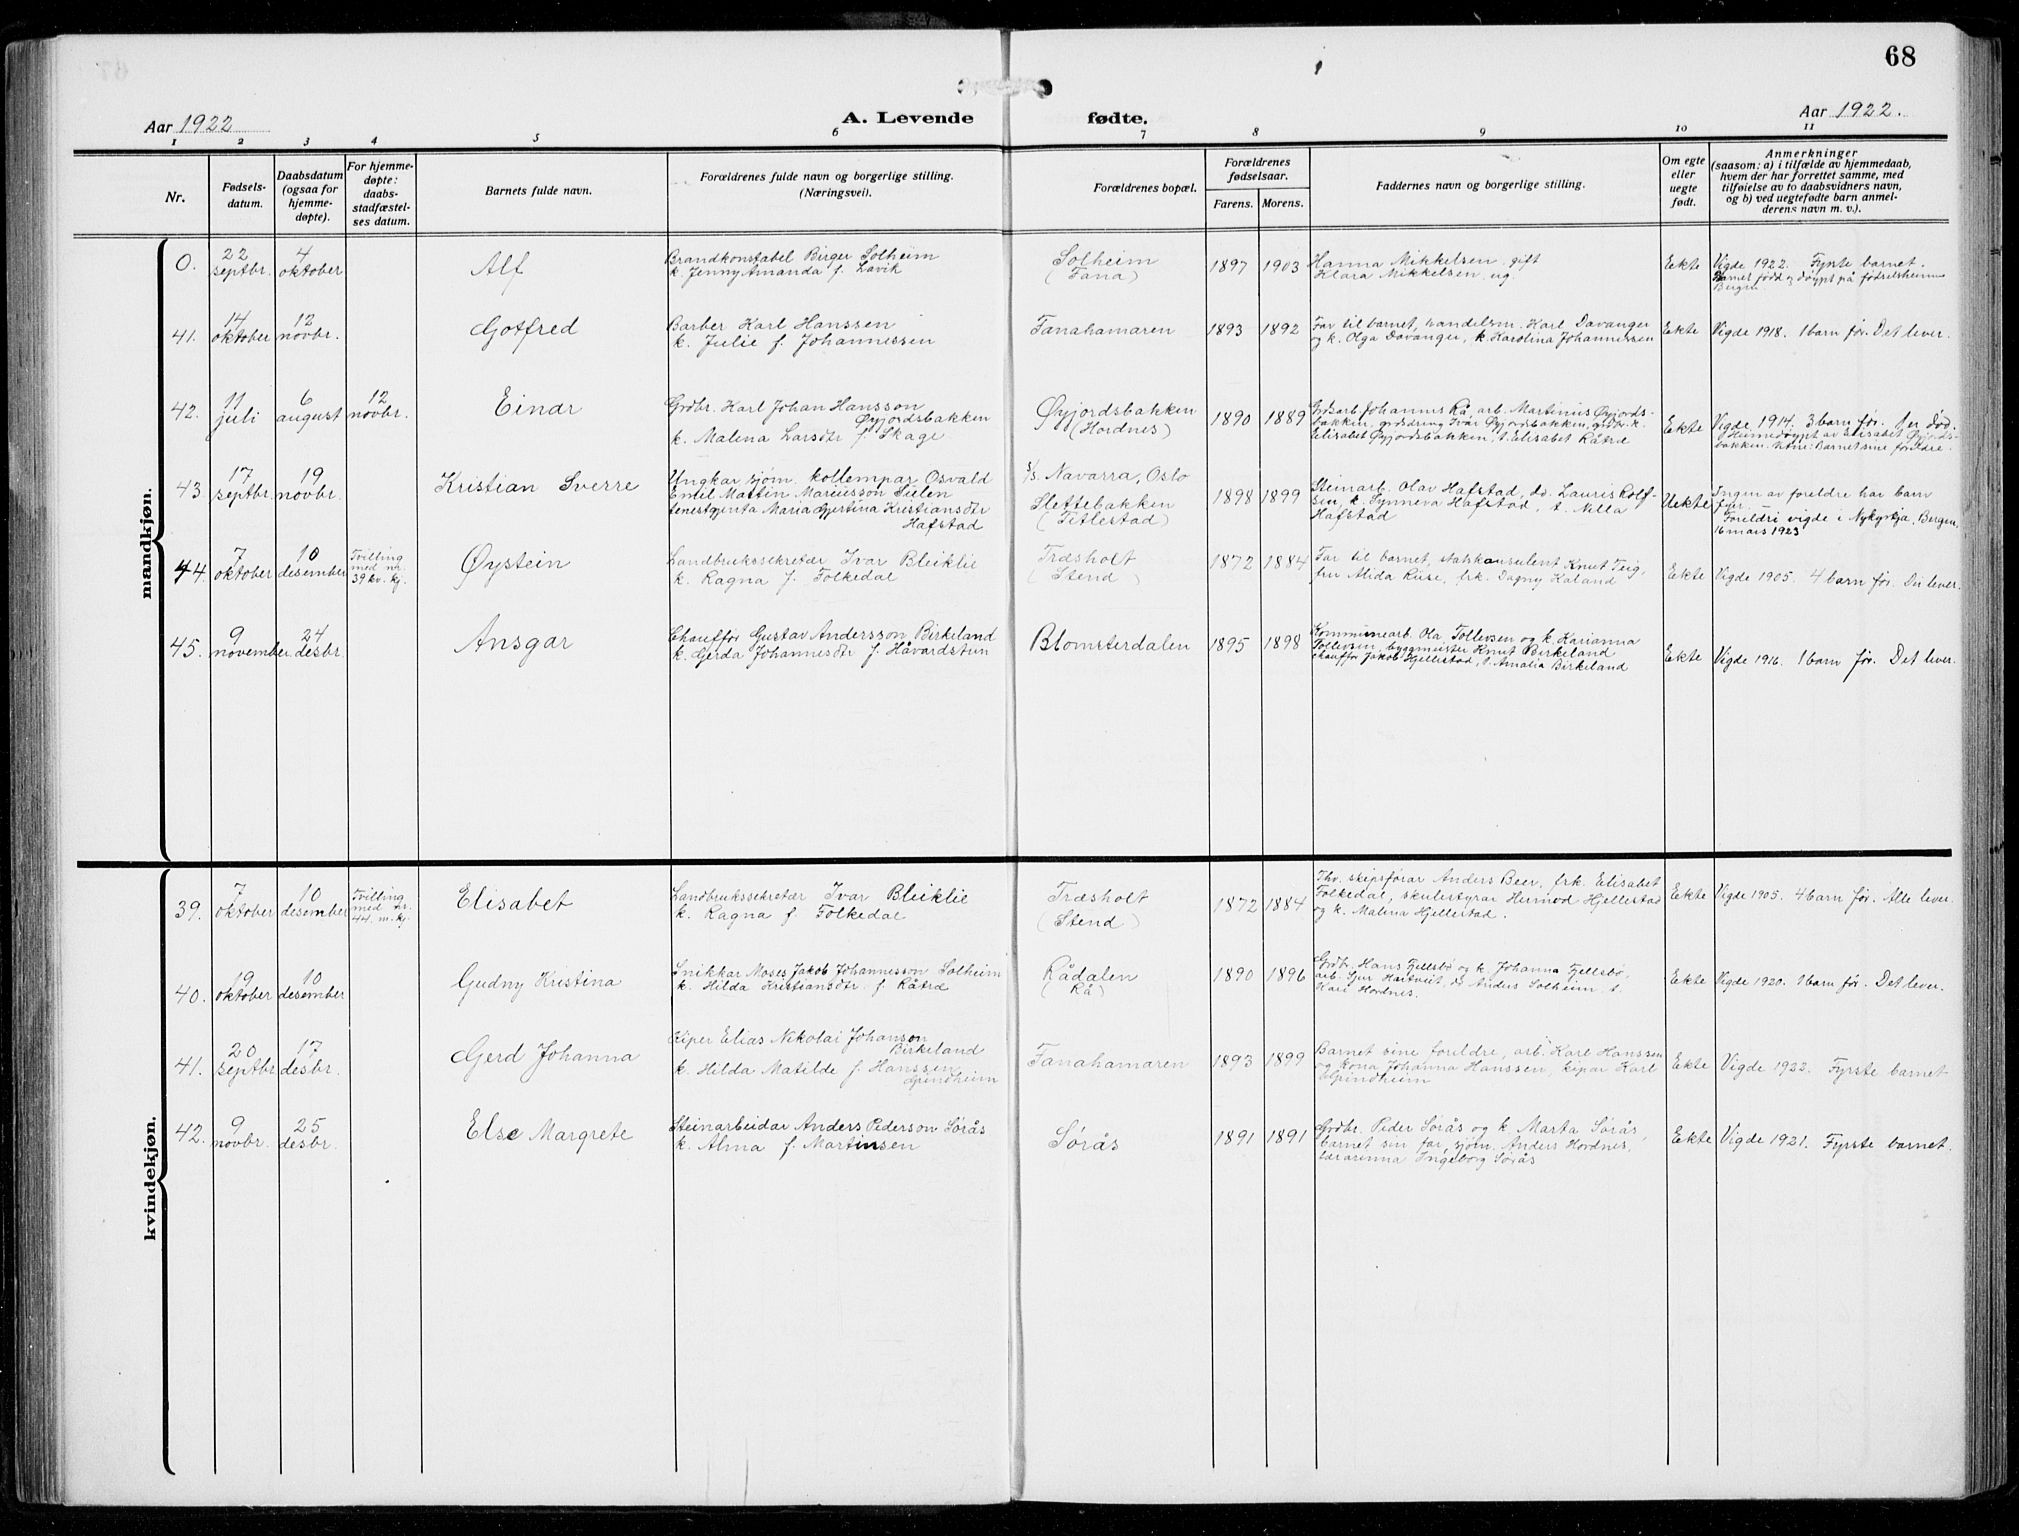 68
Aar 1922
A. Levende fødte.
Aar 1922.
1 2 3 4 5 6 7 8 9 10 11
Nr.
Fødsels-
datum.
Daabsdatum
(ogsaa for
hjemme-
døpte).
For hjemme-
døpte:
daabs-
stadfæstel-
ses datum.
Barnets fulde navn.
Forældrenes fulde navn og borgerlige stilling.
(Næringsvei).
Forældrenes bopæl.
Forældrenes
fødselsaar.
Farens. Morens.
Faddernes navn og borgerlige stilling.
Om egte
eller
uegte
født.
Anmerkninger
(saasom: a) i tilfælde av hjemmedaab,
hvem der har forrettet samme, med
tilføielse av to daabsvidners navn,
og b) ved uegtefødte barn anmel-
derens navn m. v.).
mandkjøn.
0.
22
septbr.
4
oktober
Alf
Brandkonstabel Birger Solheim
k. Jenny Amanda f. Lavik
Solheim
(Fana)
1897 1903
Hanna Mikkelsen, gift
Klara Mikkelsen, ug.
Eekte
Vigde 1922. Fyrste barnet.
Barnet fødd og døypt på fødselsheimen
Bergen
41.
14
oktober
12
novbr.
Gotfred
Barber Karl Hanssen
k. Julie f. Johannessen
Fanahamaren
1893 1892
Far til barnet, handelsm. Karl Davanger
og k. Olga Davanger, k. Karolina Johannessen
Ekte
Vigde 1918. 1 barn før. Det lever.
42.
11
juli
6
august
12
novbr.
Einar
Grdbr. Karl Johan Hansson
Øyjordsbakken
k. Malena Larsdtr f. Skage
Øyjordsbakken
(Hordnes)
1890 1889
Grdsarb. Johannes Rå, arb. Martinus Øyjords-
bakken, grdsdreng Ivar Øyjordsbakken, grdbr. k.
Elisabet Øyjordsbakken, t. Elisabet Råtræ
Ekte
Vigde 1914. 3 barn før. 1 er død.
Heimedøypt av Elisabet Øyjords-
bakken. Vitne: Barnet sine foreldre.
43.
17
septbr.
19
novbr.
Kristian Sverre
Ungkar sjøm. kollempar Osvald
Emil Martin Mariusson Sulen
tenestgjenta Maria Gjertina Kristiansdtr
Hafstad
S/S Navarra, Oslo
Slettebakken
(Titlestad)
1898 1899
Steinarb. Olav Hafstad, do. Lauris Rolf-
sen, k. Synneva Hafstad, t. Nilla
Hafstad
Uekte
Ingen av foreldre har barn
fyrr.
Foreldri vigde i Nykyrkja, Bergen,
16 mars 1923
44.
7
oktober
10
desember
Tvilling
med nr.
39 kv. kj.
Øystein
Landbrukssekretær Ivar Bleiklie
k. Ragna f. Folkedal
Træsholt
(Stend)
1872 1884
Far til barnet, statskonsulent Knut Teig,
fru Alida Ruse, frk. Dagny Haland
Ekte
Vigde 1905. 4 barn før. Dei lever.
45.
9
november
24
desbr.
Ansgar
Chauffør Gustav Andersson Birkeland
k. Gerda Johannesdtr f. Håvardstun
Blomsterdalen
1895 1898
Kommunearb. Ola Tollevsen og k. Karianna
Tollevsen, byggmeister Knut Birkeland
chauffør Jakob Hjellestad, t. Amalia Birkeland
Ekte
Vigde 1916. 1 barn før. Det lever.
kvindekjøn.
39.
7
oktober
10
desember
Tvilling
med nr.
44. m. kj.
Elisabet
Landbrukssekretær Ivar Bleiklie
k. Ragna f. Folkedal
Træsholt
(Stend)
1872 1884
Thv. skipsførar Anders Beer, frk. Elisabet
Folkedal, skulestyrar Hermod Hjellestad
og k. Malena Hjellestad.
Ekte
Vigde 1905. 4 barn før. Alle lever.
40.
19
oktober
10
desember
Gudny Kristina
Snikkar Moses Jakob Johannesson Solheim
k. Hilda Kristiansdtr. f. Råtræ
Rådalen
(Rå)
1890 1896
Grdbr. Hans Fjellsbø og k. Johanna Fjellsbø,
arb. Sjur Hartveit, do Anders Solheim, t.
Kari Hordnes.
Ekte
Vigde 1920. 1 barn før. Det lever.
41.
20
septbr
17
desbr.
Gerd Johanna
Kiper Elias Nikolai Johanson
Birkeland
k. Hilda Matilde f. Hanssen
Espindheim
Fanahamaren
1893 1899
Barnet sine foreldre, arb. Karl Hanssen
og kona Johanna Hanssen, kipar Karl
Espindheim
Ekte
Vigde 1922. Fyrste barnet
42.
9
novbr.
25
desbr.
Else Margrete
Steinarbeidar Anders Pederson Sørås
k. Alma f. Martinsen
Sørås
1891 1891
Grdbr. Peder Sørås og k. Marta Sørås,
barnet sin far, sjøm. Anders Hordnes,
lærarinna Ingeborg Sørås
Ekte
Vigde 1921. Fyrste barnet.